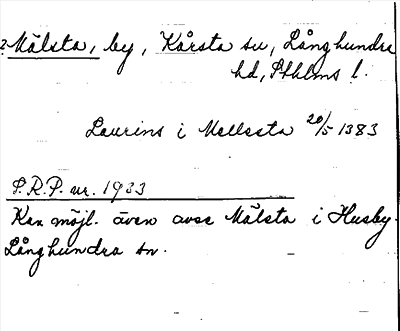 ? Mälsta, by, Kårsta sn, Långhundra
hd, Sthlms l.
Laurins i Mellesta 20/5 1383
S.R.P. nr. 1933
Kan möjl. även avse Mälsta i Husby-
Långhundra sn.